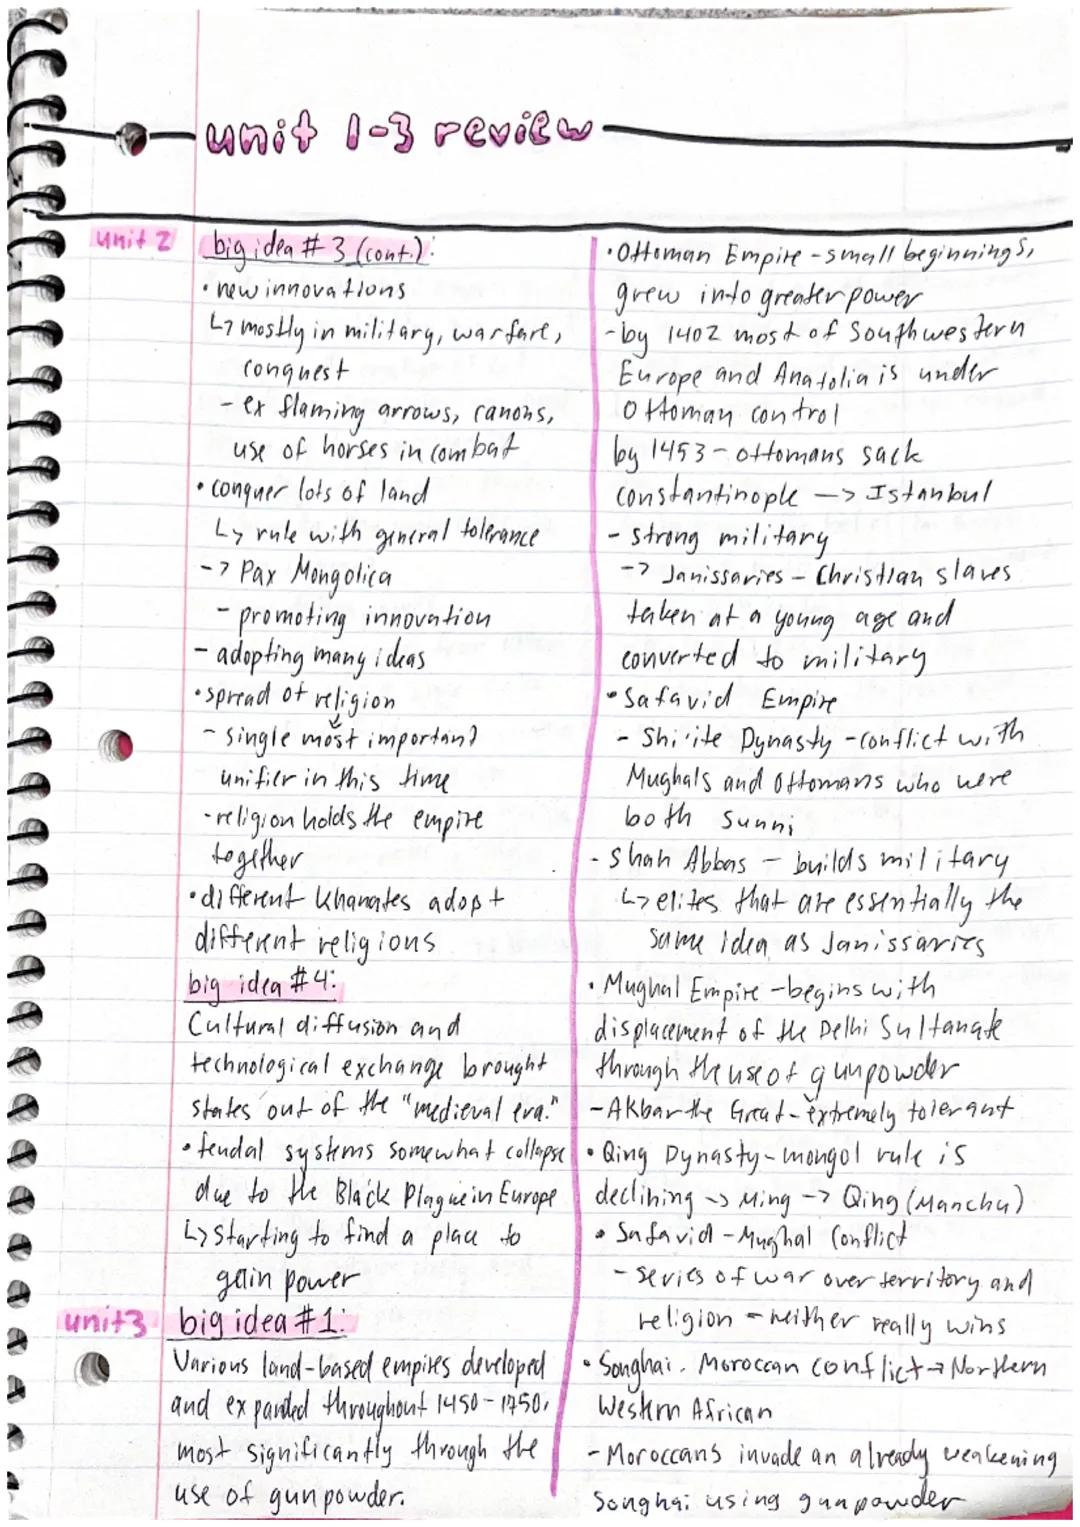 unit 1-3 review
unit 2
big idea #3 (cont.):
• new innovations
↳ mostly in military, warfare,
conquest
- ex flaming arrows, canons,
use of horses in combat
• conquer lots of land
↳ rule with general tolerance
-> Pax Mongolica
- promoting innovation
- adopting many ideas
• spread of religion
- single most important
unifier in this time
- religion holds the empire
together
• different Khanates adopt
different religions
big idea #4:
Cultural diffusion and
technological exchange brought
states out of the "medieval era."
• feudal systems somewhat collapse
due to the Black Plague in Europe
↳ starting to find a place to
gain power
unit 3
big idea #1:
Various land-based empires developed
and expanded throughout 1450-1750,
most significantly through the
use of gunpowder.
• Ottoman Empire - small beginnings,
grew into greater power
- by 1402 most of Southwestern
Europe and Anatolia is under
Ottoman control
by 1453 - ottomans sack
constantinople -> Istanbul
- strong military
-> Janissaries - Christian slaves
taken at a young age and
converted to military
• Safavid Empire
- Shi'ite Dynasty - conflict with
Mughals and Ottomans who were
both sunni
- Shah Abbas - builds military
↳ elites that are essentially the
same idea as Janissaries
• Mughal Empire - begins with
displacement of the Delhi Sultanate
through the use of gunpowder
- Akbar the Great - extremely tolerant
• Qing Dynasty - mongol rule is
declining -> Ming -> Qing (Manchu)
• Safavid - Mughal Conflict
- series of war over territory and
religion - neither really wins
• Songhai - Moroccan conflict -> Northern
Western African
- Moroccans invade an already weakening
Songhai using gunpowder